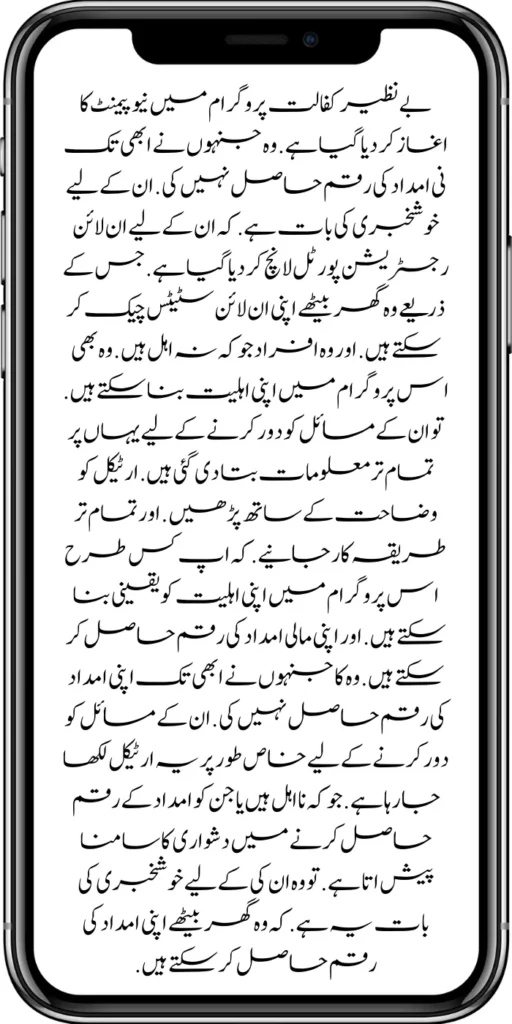 بے نظیر کفالت پروگرام میں نیو پیمنٹ کا
اغاز کر دیا گیا ہے. وہ جنہوں نے ابھی تک
نی امداد کی رقم حاصل نہیں کی. ان کے لیے
خوشخبری کی بات ہے. کہ ان کے لیے ان لائن
رجسٹریشن پورٹل لانچ کر دیا گیا ہے. جس کے
ذریعے وہ گھر بیٹھے اپنی ان لائن سٹیٹس چیک کر
سکتے ہیں. اور وہ افراد جو کہ نہ اہل ہیں. وہ بھی
اس پروگرام میں اپنی اہلیت بنا سکتے ہیں.
تو ان کے مسائل کو دور کرنے کے لیے یہاں پر
تمام تر معلومات بتا دی گئی ہیں. ارٹیکل کو
وضاحت کے ساتھ پڑھیں. اور تمام تر
طریقہ کار جانیے. کہ اپ کس طرح
اس پروگرام میں اپنی اہلیت کو یقینی بنا
سکتے ہیں. اور اپنی مالی امداد کی رقم حاصل کر
سکتے ہیں. وہ کا جنہوں نے ابھی تک اپنی امداد
کی رقم حاصل نہیں کی. ان کے مسائل کو
دور کرنے کے لیے خاص طور پر یہ ارٹیکل لکھا
جا رہا ہے. جو کہ نااہل ہیں یا جن کو امداد کے رقم
حاصل کرنے میں دشواری کا سامنا
پیش اتا ہے. تو وہ ان کی کے لیے خوشخبری کی
بات یہ ہے. کہ وہ گھر بیٹھے اپنی امداد کی
رقم حاصل کر سکتے ہیں.